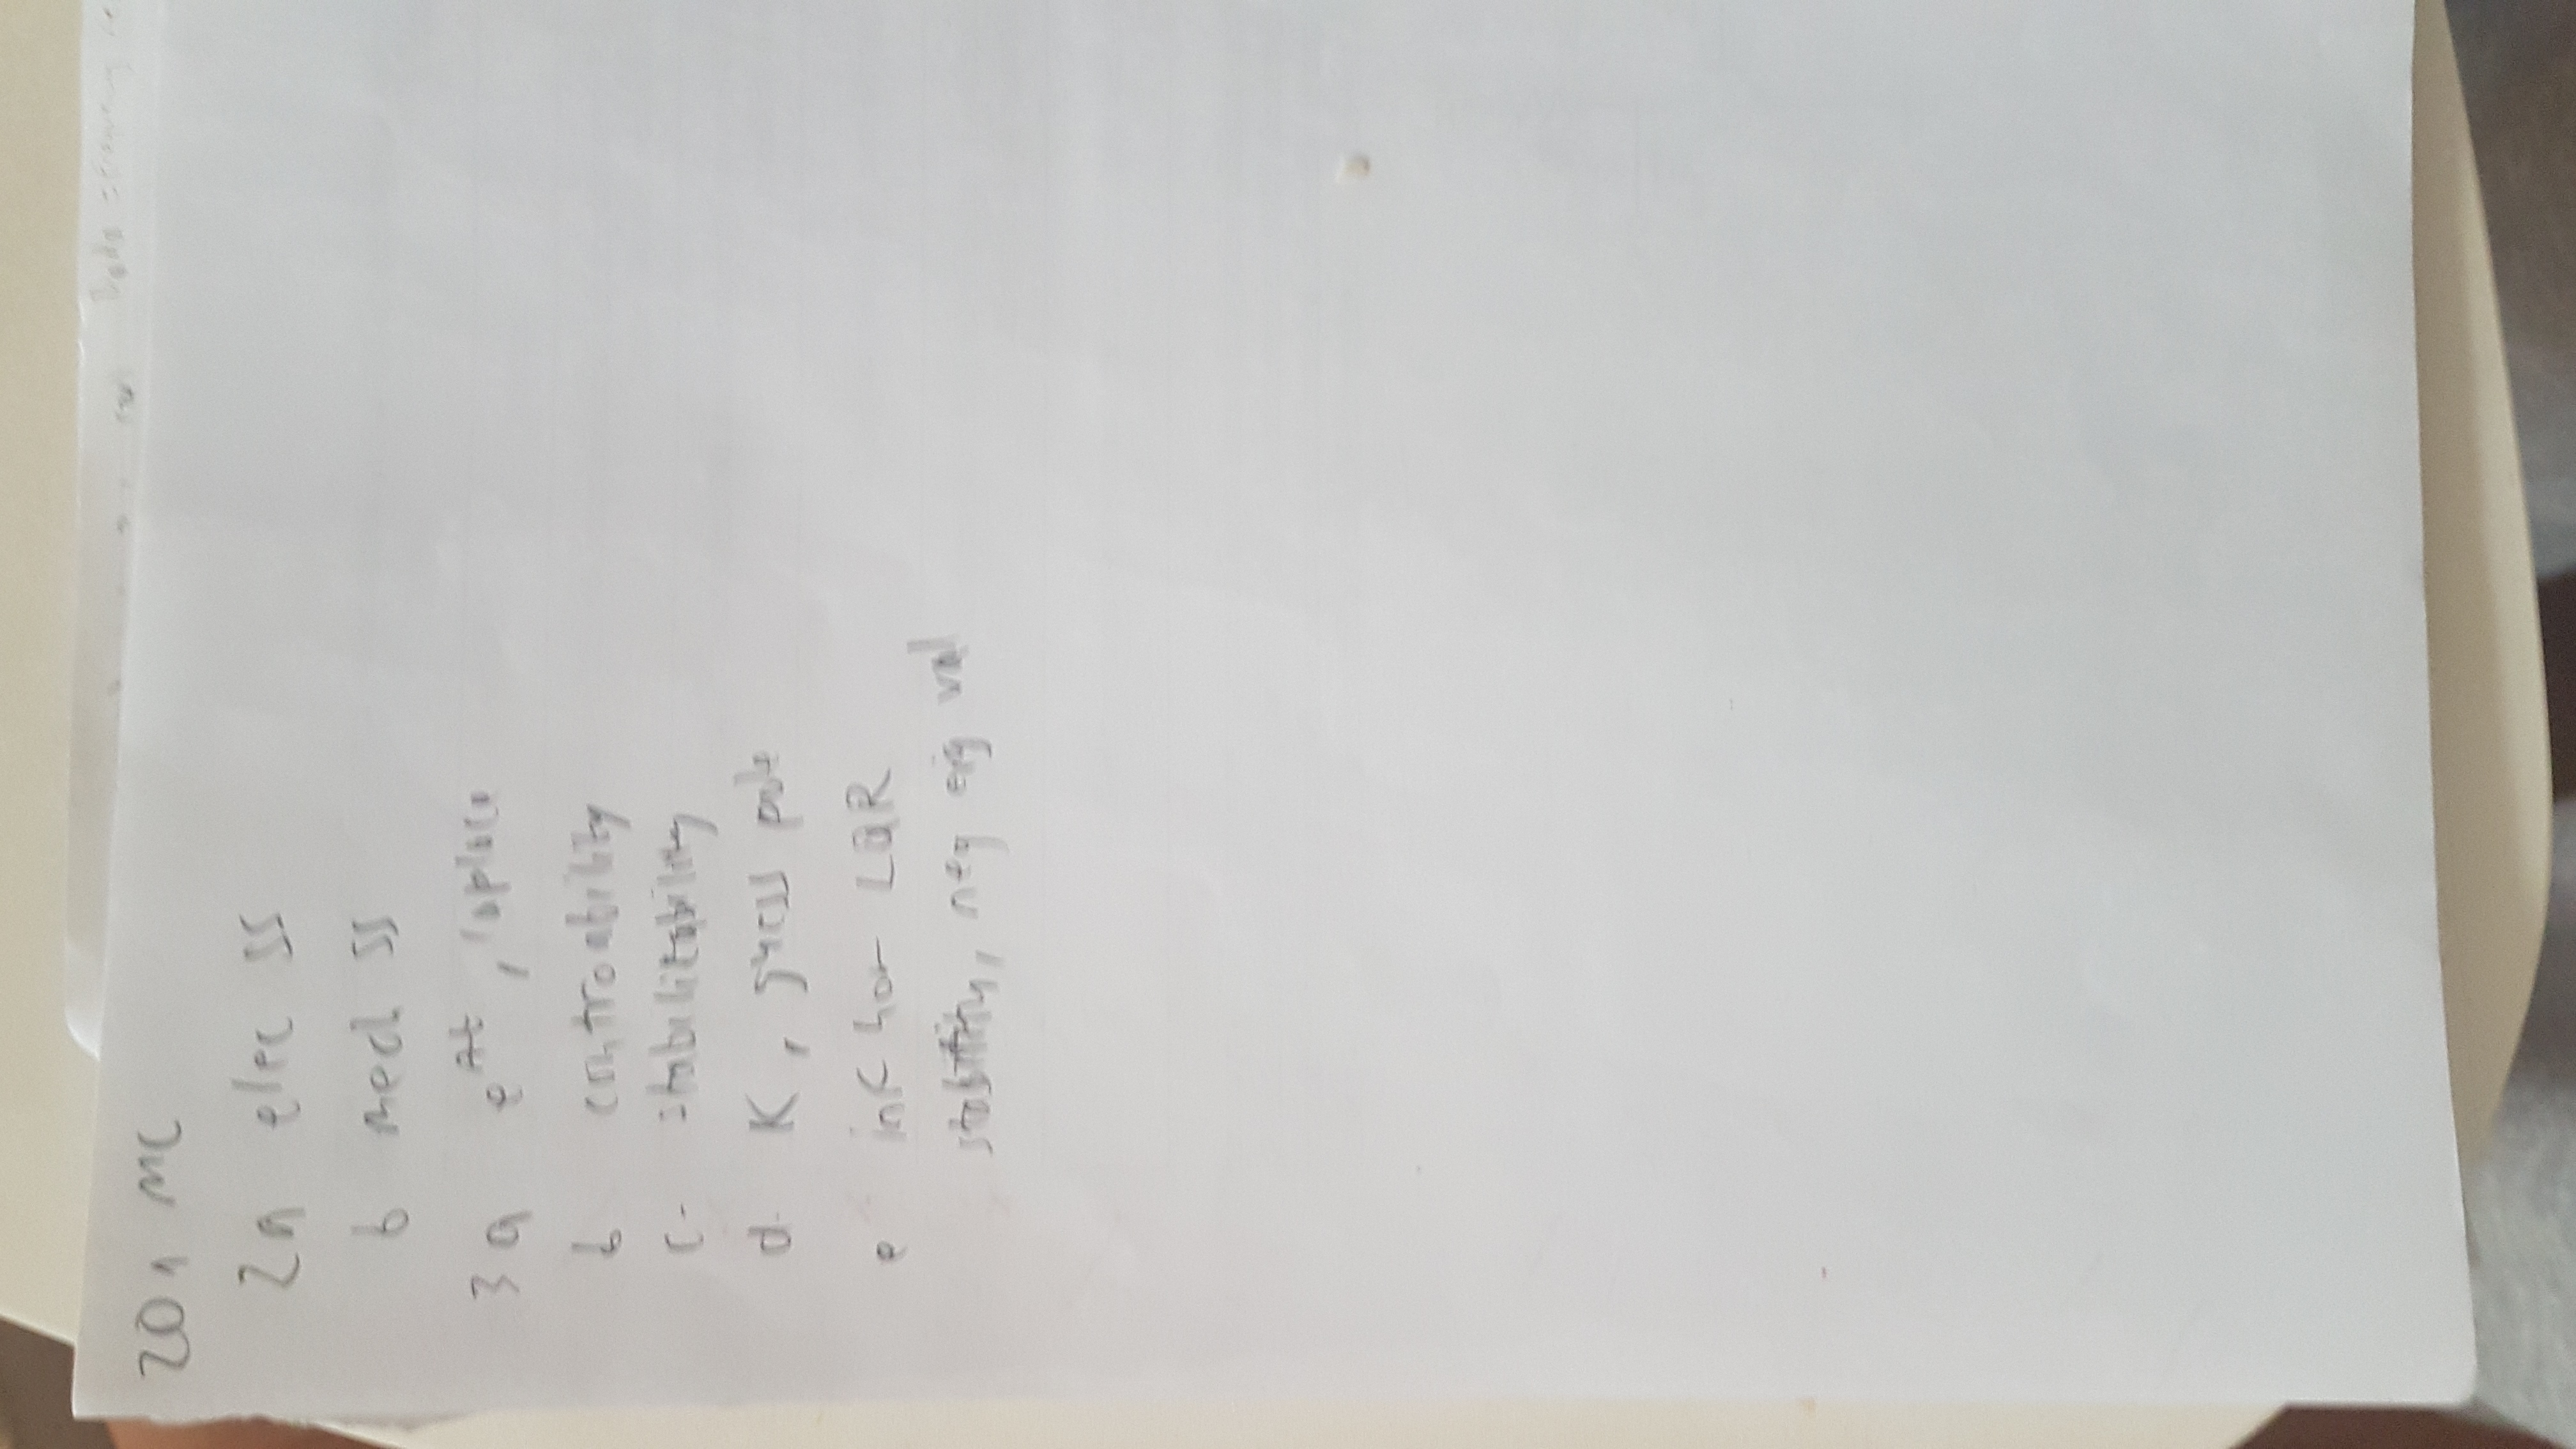 20 1 MC
2a elec SS
b mech SS
3a e^At, laplace
b controability
c- stabilitability
d- K, guess pole
e inf hor LQR
stability, neg eig val